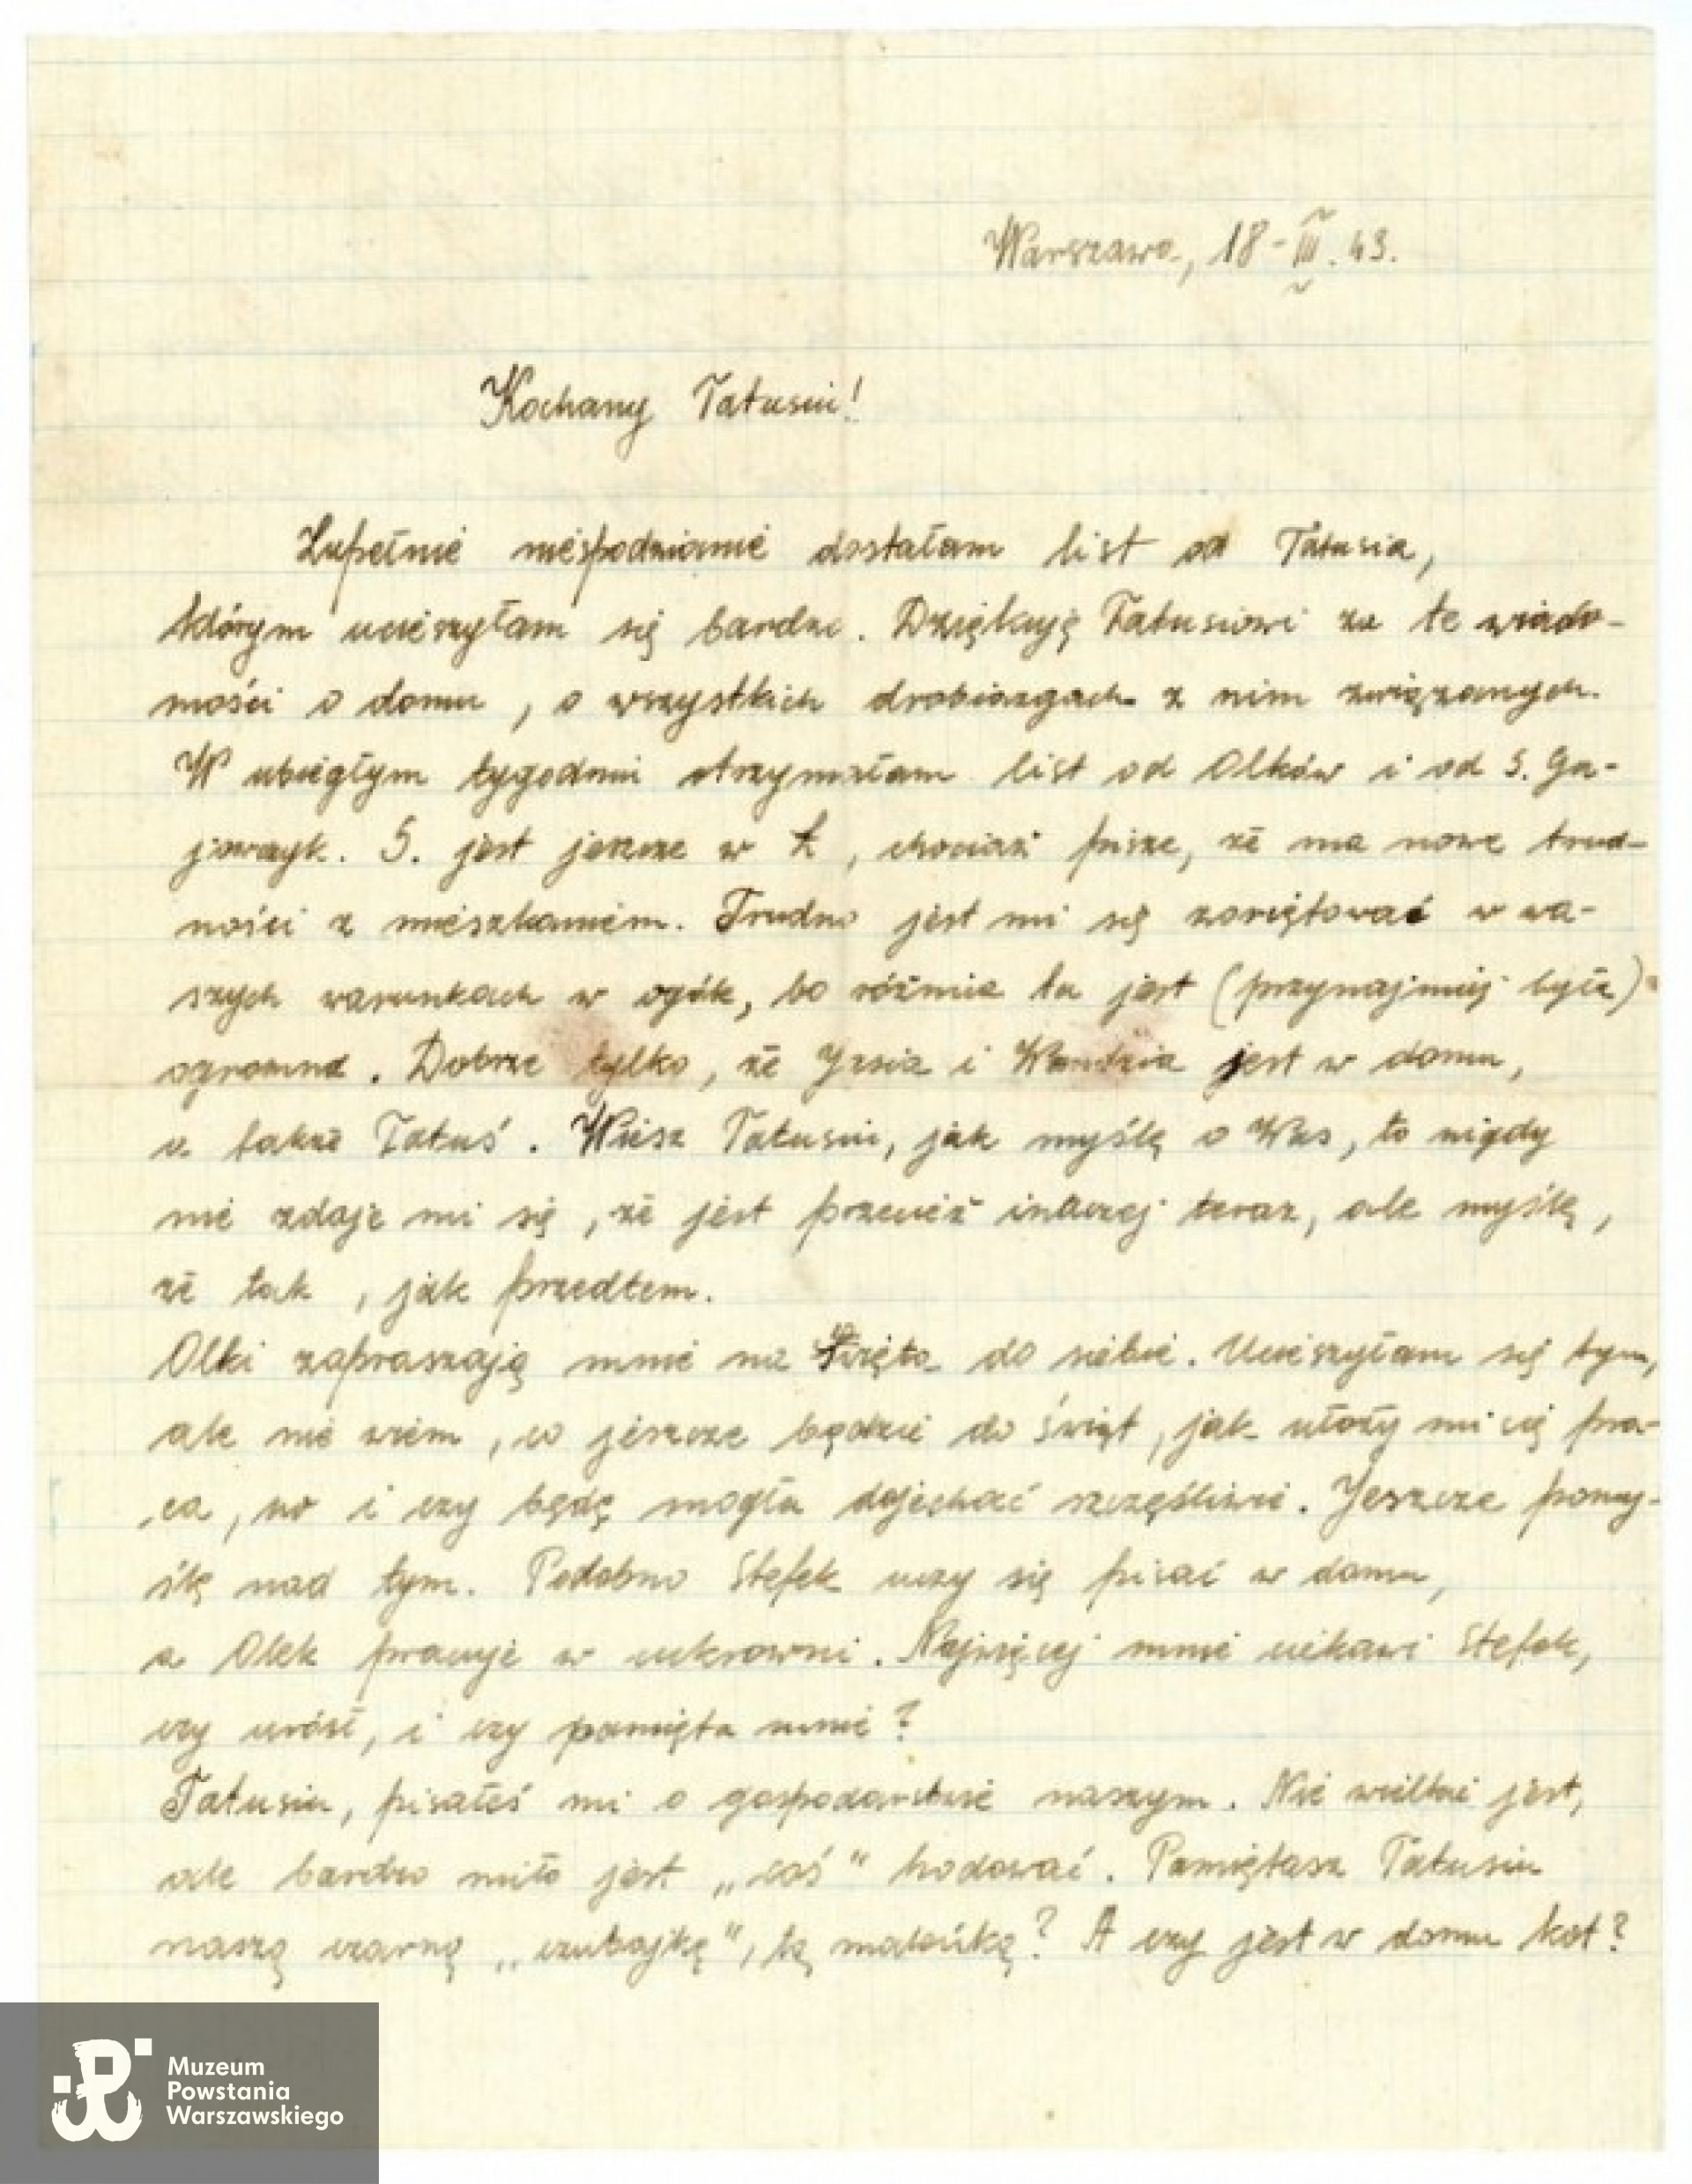 Warszawa, 18-III.43.
Kochany Tatusiu!
Zupełnie niespodzianie dostałam list od Tatusia,
którym ucieszyłam się bardzo. Dziękuję Tatusiowi za te wiado-
mości o domu, o wszystkich drobiazgach z nim związanych.
W ubiegłym tygodniu otrzymałam list od Olków i od S. Ga-
jowczyk. S. jest jeszcze w Ł, chociaż pisze, że ma nowe trud-
ności z mieszkaniem. Trudno jest mi się zorjętować w wa-
szych warunkach w ogóle, bo różnica tu jest (przynajmniej była)
ogromna. Dobrze tylko, że Izia i Wandzia jest w domu,
a także Tatuś. Wiesz Tatusiu, jak myślę o Was, to nigdy
nie zdaje mi się, że jest przecież inaczej teraz, ale myślę,
że tak, jak przedtem.
Olki zapraszają mnie na Święta do siebie. Ucieszyłam się tym,
ale nie wiem, co jeszcze będzie do świąt, jak ułoży mi się pra-
ca, no i czy będę mogła dojechać szczęśliwie. Jeszcze pomy-
ślę nad tym. Podobno Stefek uczy się pisać w domu,
a Olek pracuje w cukrowni. Najwięcej mnie ciekawi Stefek,
czy urósł, i czy pamięta mnie?
Tatusiu, pisałeś mi o gospodarstwie naszym. Nie wielkie jest,
ale bardzo miło jest „coś" hodować. Pamiętasz Tatusiu
naszą czarną „czubajkę", tą maleńką? A czy jest w domu kot?
Muzeum
Powstania
Warszawskiego